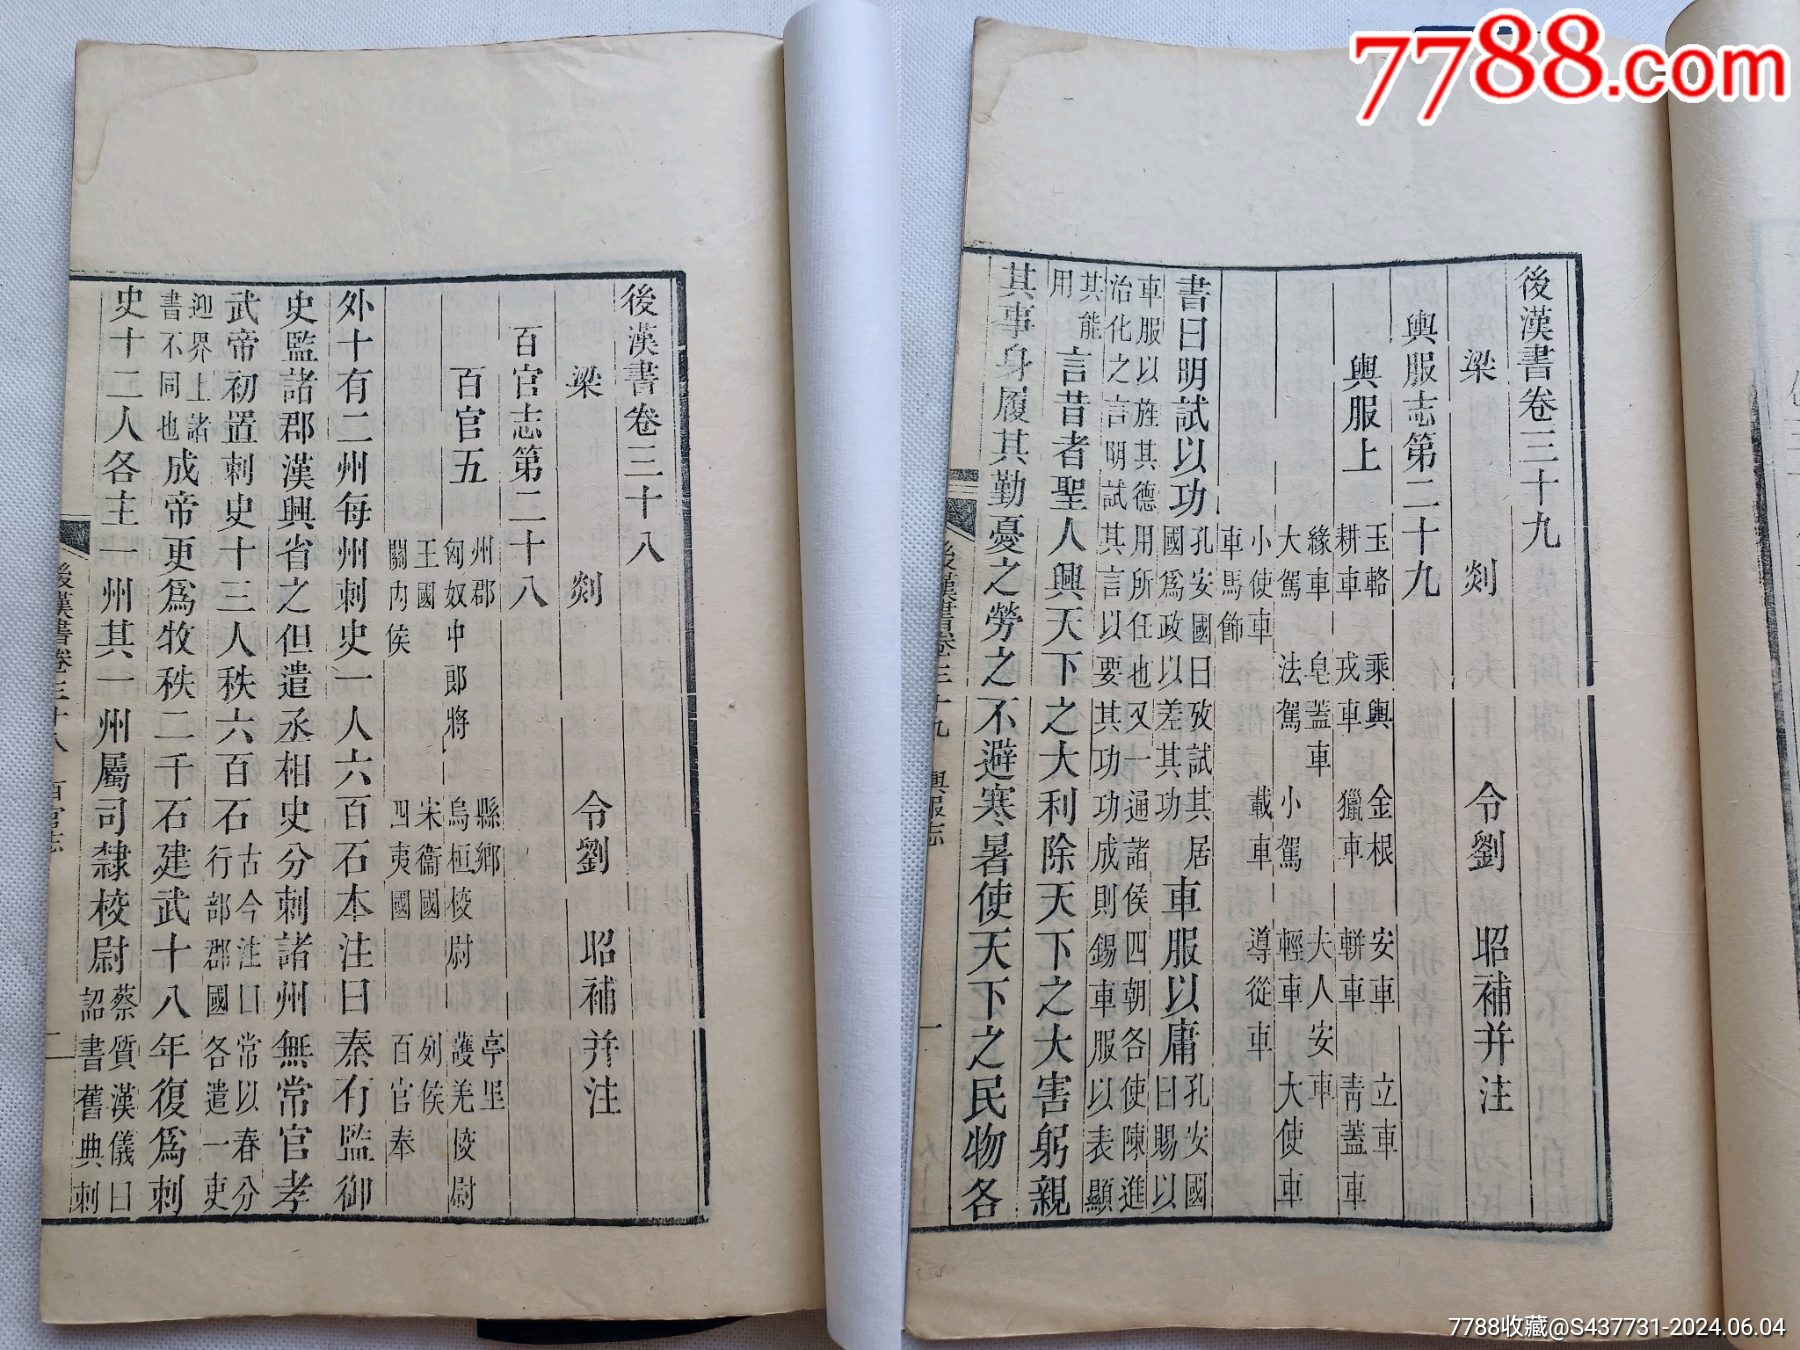 後漢書卷三十八
梁 剡 令劉 昭補并注
百官志第二十八
百官五
州郡 縣鄉 亭里
匈奴中郎將 烏桓校尉 護羌校尉
王國 宋衞國 列侯
關內侯 四夷國 百官奉
外十有二州每州刺史一人六百石本注曰秦有監御
史監諸郡漢興省之但遣丞相史分刺諸州無常官孝
武帝初置刺史十三人秩六百石古今注曰常以春分行部郡國各遣一吏
迎界上諸書不同也成帝更爲牧秩二千石建武十八年復爲刺
史十二人各主一州其一州屬司隸校尉蔡質漢儀曰詔書舊典刺
後漢書卷三十八 百官志 一
後漢書卷三十九
梁 剡 令劉 昭補并注
輿服志第二十九
輿服上
玉輅 乘輿 金根 安車 立車
耕車 戎車 獵車 軿車 青蓋車
緣車 皂蓋車 夫人安車
大駕 法駕 小駕 輕車 大使車
小使車 載車 導從車
車馬飾
書曰明試以功孔安國曰攷試其居國爲政以差其功車服以庸孔安國曰賜以
車服以旌其德用所任也又一通諸侯四朝各使陳進
治化之言明試其言以要其功功成則錫車服以表顯
其能用言昔者聖人興天下之大利除天下之大害躬親
其事身履其勤憂之勞之不避寒暑使天下之民物各
後漢書卷三十九 輿服志 一
7788.com
7788收藏@S437731-2024.06.04